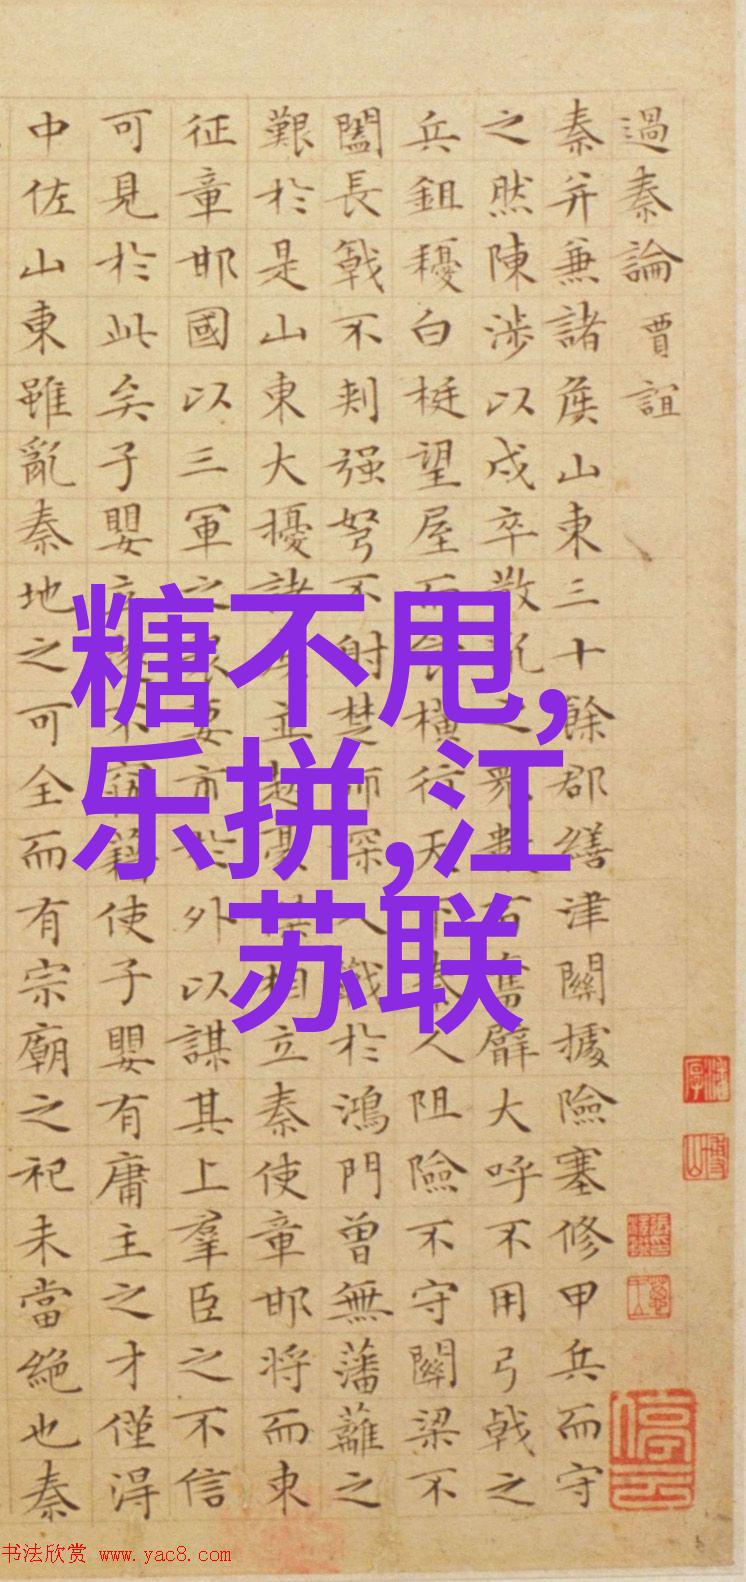 過秦論 賈誼
秦并兼諸侯山東三十餘郡繕津關據險塞修甲兵而守
之然陳涉以戍卒散亂之衆數百奮臂大呼不用弓戟之
兵鉏耰白梃望屋而食橫行天下秦人阻險不守關梁不
闔長戟不刾强弩不射楚師深入戰於鴻門曾無藩蘺之
艱於是山東大擾諸侯並起豪傑相立秦使章邯將而東
征章邯國以三軍之衆要市於外以謀其上羣臣之不信
可見於此矣子嬰立遂不寤籍使子嬰有庸主之才僅得
中佐山東雖亂秦地之可全而有宗廟之祀未當絶也秦
糖不甩,
乐拼,江
苏联
书法欣赏 www.yac8.com